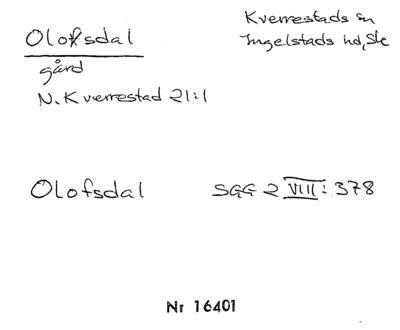 Olofsdal
gård
N. Kverrestad 21:1
Kverrestads sn
Ingelstads hd, Sk
Olofsdal
SGG 2 VIII: 378
Nr 16401